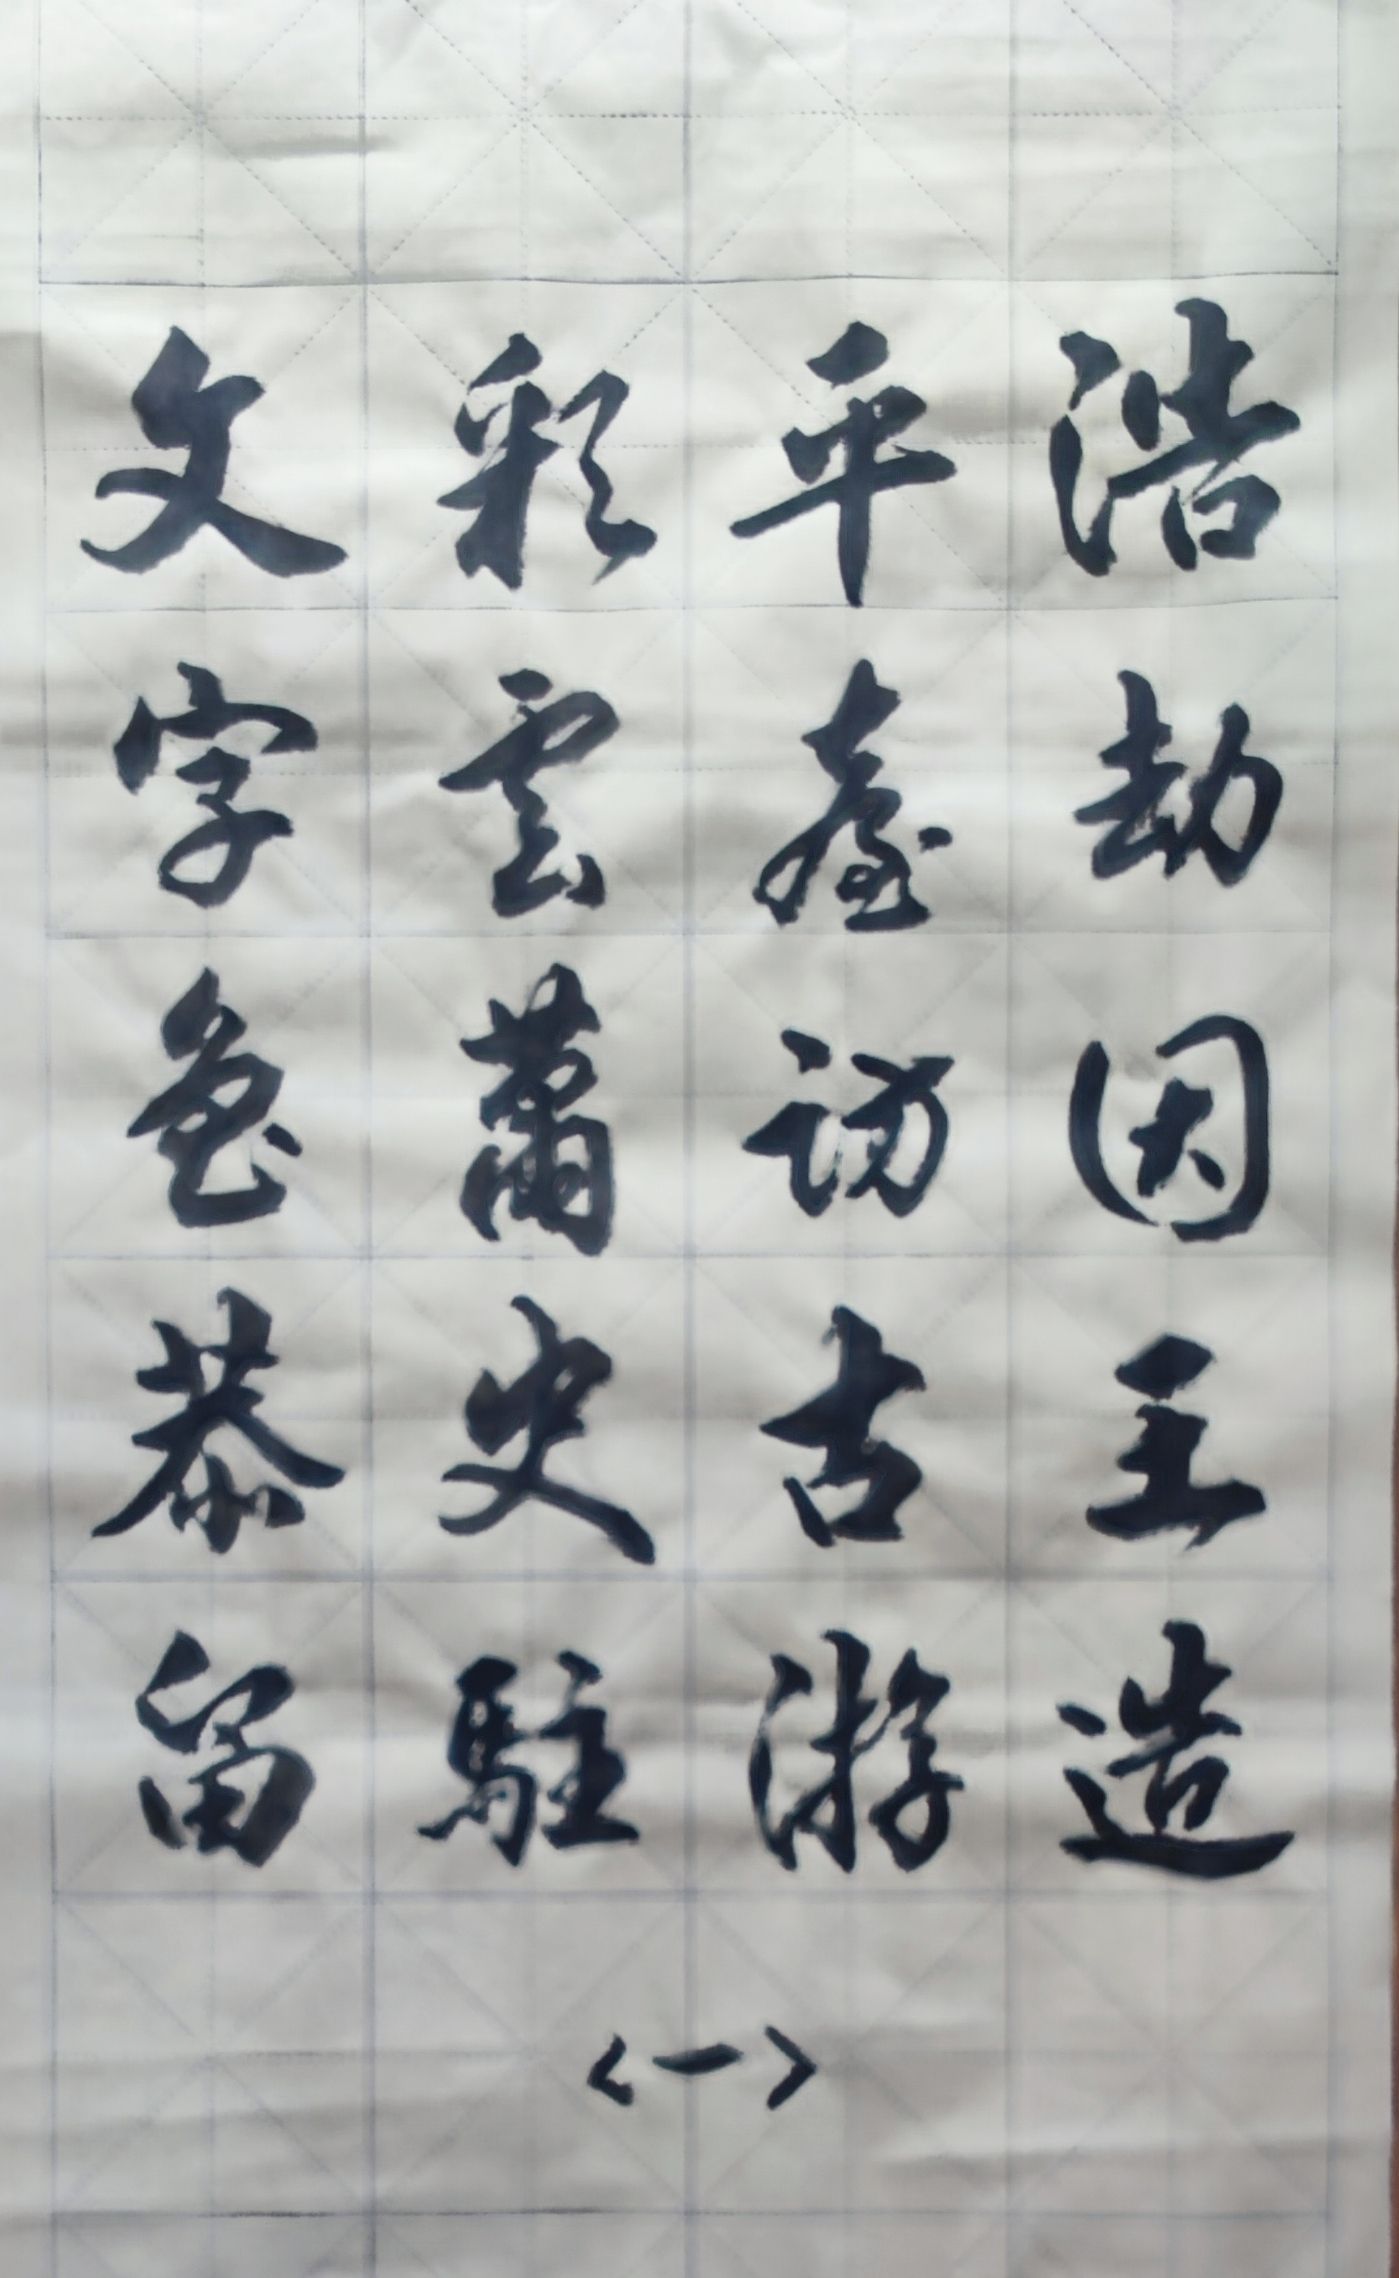 浩劫因王造
平臺訪古游
彩雲蕭史駐
文字魯恭留
<一>